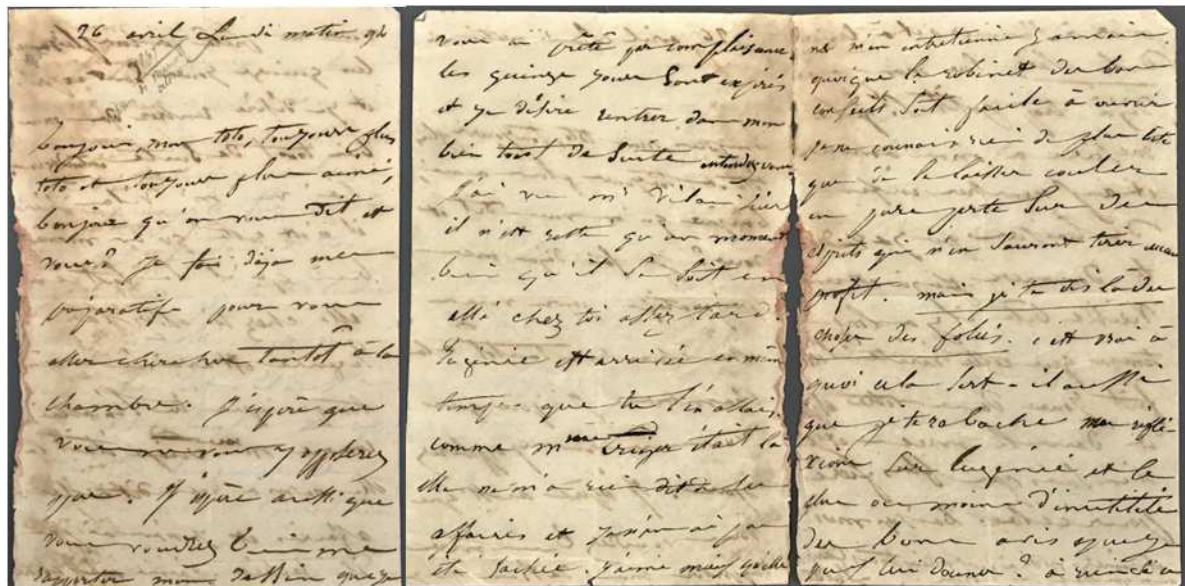 26 avril Lundi matin 9h
Bonjour, mon toto, toujours plus
toto et toujours plus aimé,
bonjour qu'on vous dit et
vous? Je fais déjà mes
préparatifs pour vous
aller chercher tantôt à la
chambre. J'espère que
vous ne vous y opposerez
pas. J'espère aussi que
vous voudrez bien me
rapporter mon dessin que je
vous ai prêté par complaisance
les quinze jours sont expirés
et je désire rentrer dans mon
bien tout de suite entendez-vous
J'ai vu mr Vilain hier
il n'est resté qu'un moment
bien qu'il se soit en
allé chez toi assez tard.
Eugénie est arrivée en même
temps que tu t'en allais,
comme mme Triger était là
elle ne m'a rien dit de ses
affaires et je n'en ai pas
été fâchée. J'aime mieux qu'elle
ne m'en entretienne jamais
quoique le robinet des bons
conseils soit facile à ouvrir
je ne connais rien de plus bête
que de le laisser couler
en pure perte sur des
esprits qui n'en sauront tirer aucun
profit. mais je te dis là des
choses des folies. c'est vrai à
quoi cela sert-il aussi
que je te rabache mes réfle-
xions sur Eugénie et le
plus ou moins d'inutilité
des bons avis que je
puis lui donner? à rien